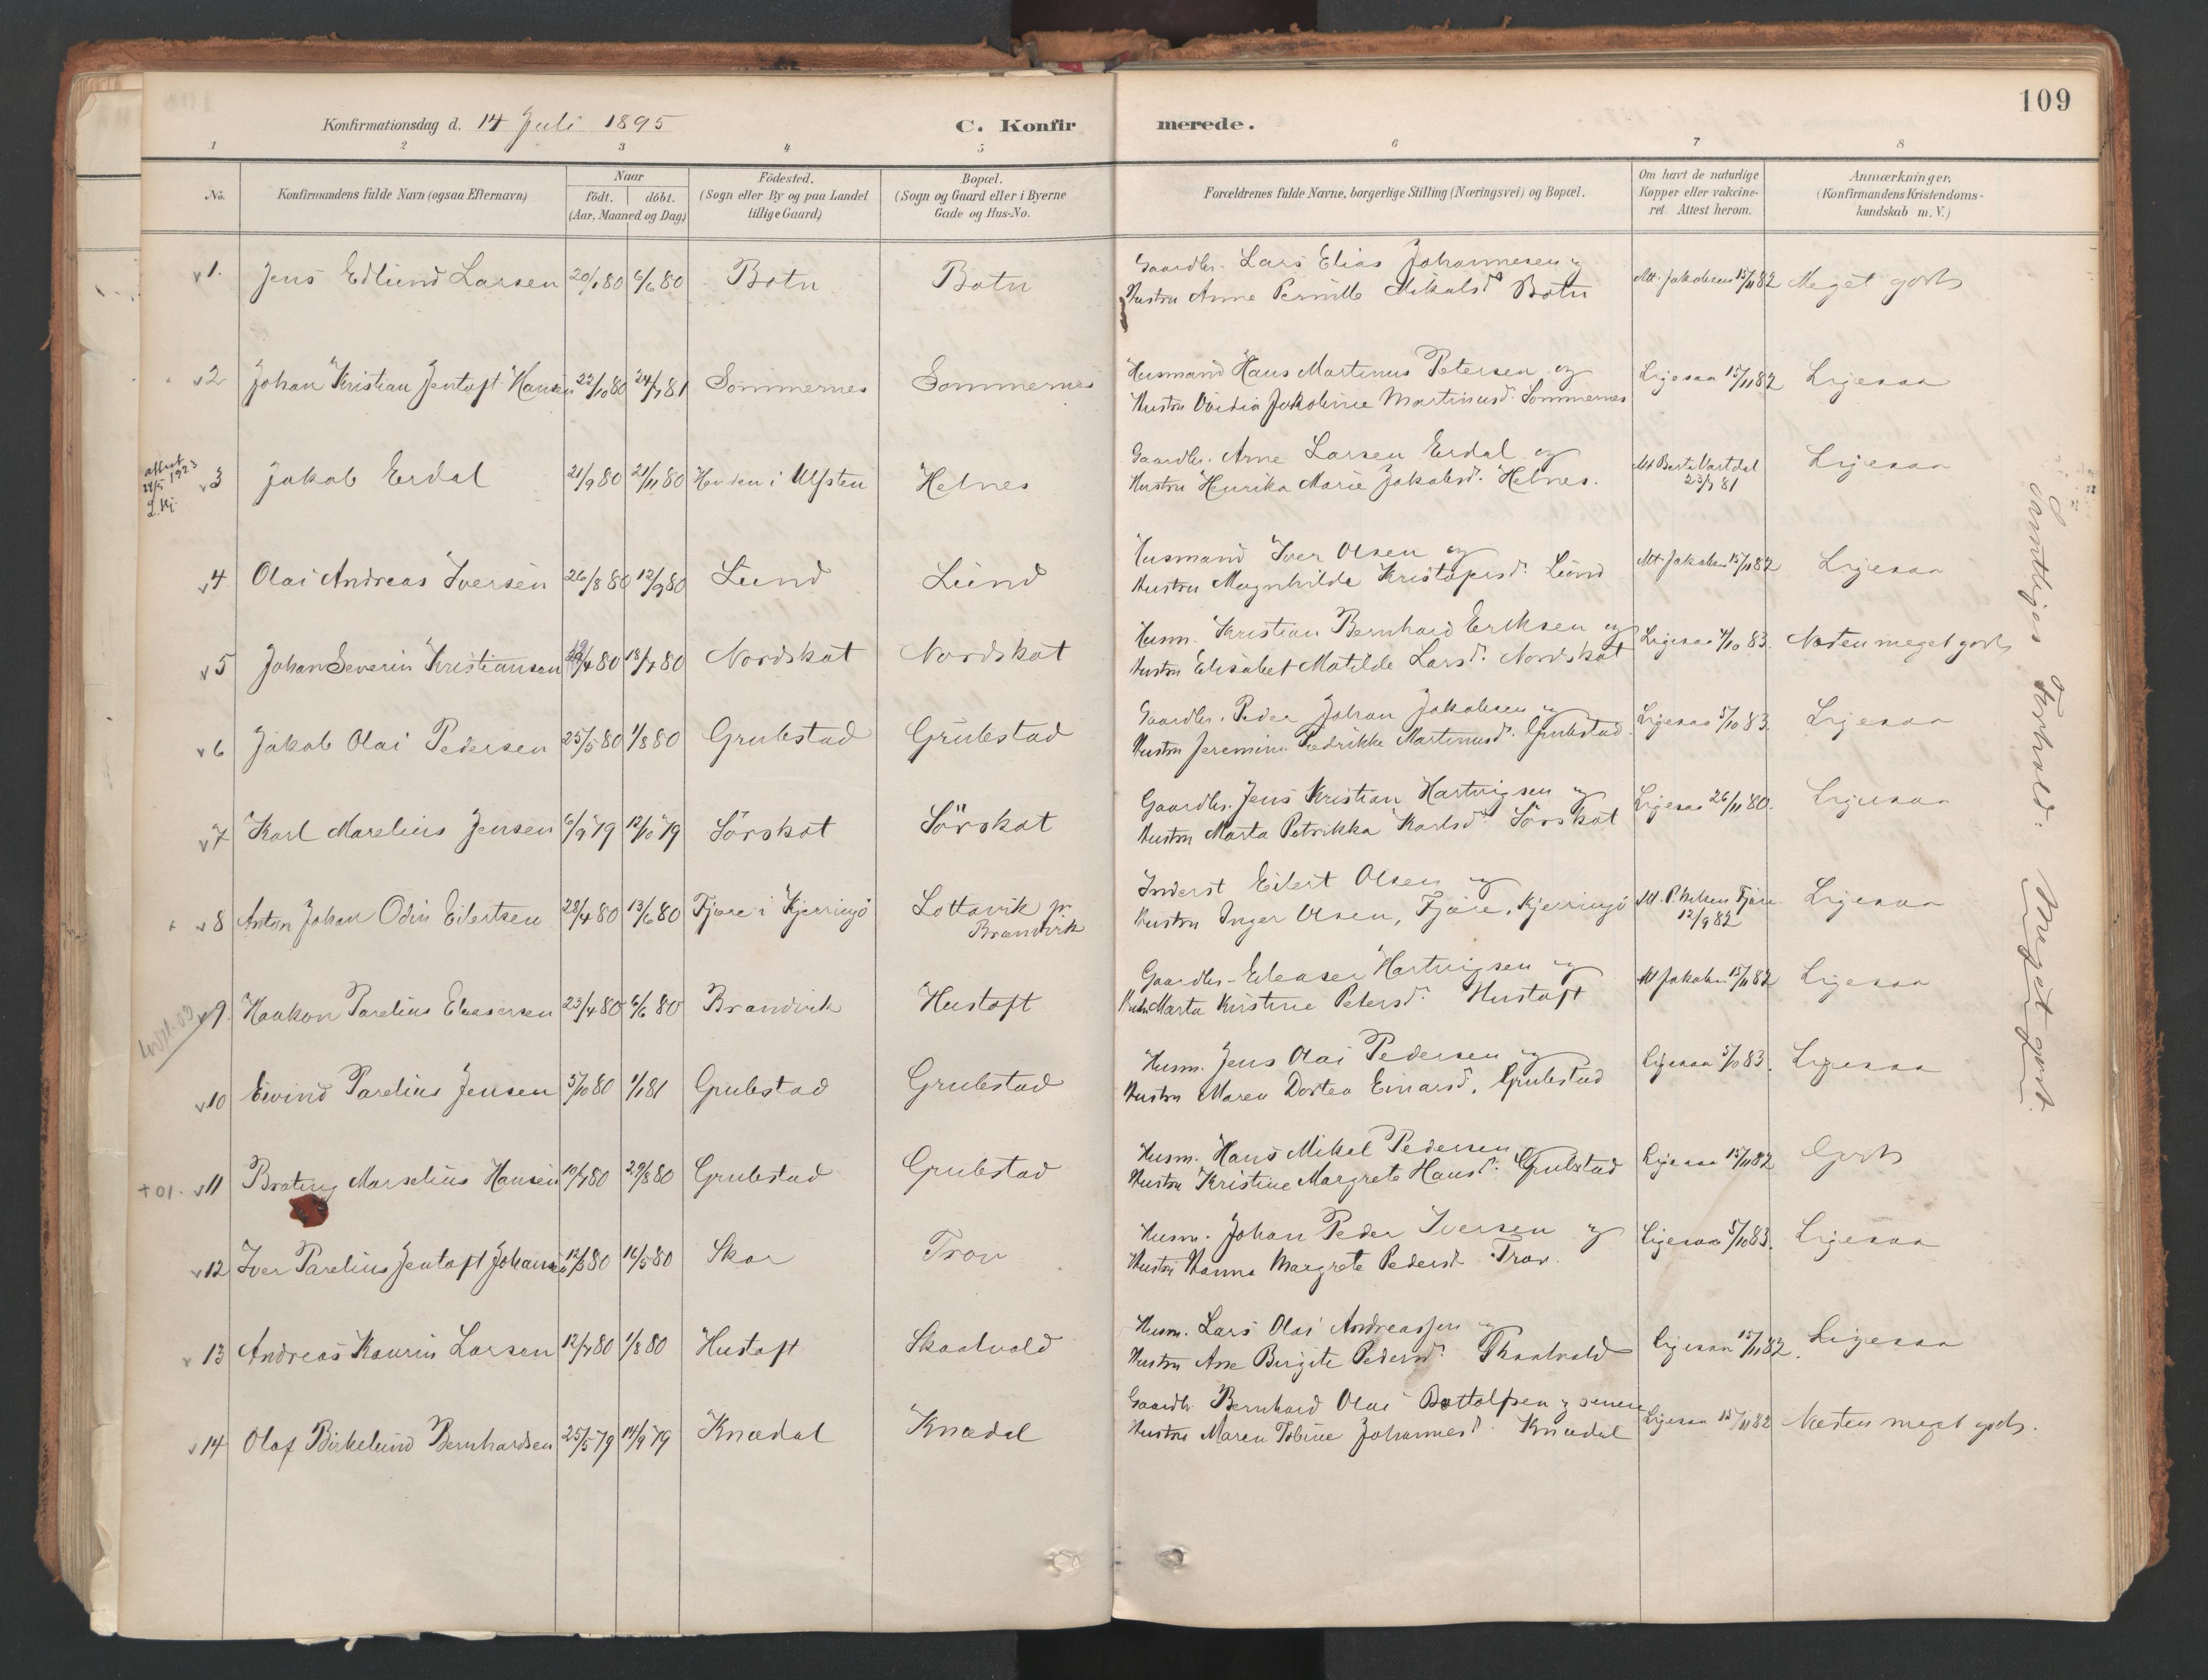 109
Konfirmationsdag d. 14 Juli 1895 C. Konfirmerede.
1 2 3 4 5 6 7 8
No. Konfirmandens fulde Navn (ogsaa Efternavn) Naar født. døbt. (Aar, Maaned og Dag) Fødested. (Sogn eller By og paa Landet tillige Gaard) Bopæl. (Sogn og Gaard eller i Byerne Gade og Hus-No. Forældrenes fulde Navne, borgerlige Stilling (Næringsvei) og Bopæl. Om havt de naturlige Kopper eller vakcineret Attest herom. Anmærkninger, (Konfirmandens Kristendomskundskab m. V.)
v 1. Jens Edlund Larsen 20/1 80 6/6 80 Botn Botn Gaardbr. Lars Elias Johannesen og
Hustru Anne Pernille Mikalsd. Botn Att. Jakobsen 15/11 82 Meget godt
v 2 Johan Kristian Jentoft Hansen 22/10 80 24/7 81 Sommernes Sommernes Husmand Hans Martinus Petersen og
Hustru Ovidia Jakobine Martinusd. Sommernes Ligesaa 15/11 82 Ligesaa
attest 1923
v 3 Jakob Erdal 21/9 80 21/11 80 i Ulfsten Helnes Gaardbr. Arne Larsen Erdal og
Hustru Henrika Marie Jakobsd. Helnes. Att Vartdal
23/7 81 Ligesaa
v 4 Olai Andreas Iversen 26/8 80 12/9 80 Lund Lund Husmand Iver Olsen og
Hustru Magnhilde Kristofersd. Lund Att. Jakobsen 15/11 82 Ligesaa
v 5 Johan Severin Kristiansen 80 18/7 80 Nordskot Nordskot Husm. Kristian Bernhard Eriksen og
Hustru Elisabet Matilde Larsd. Nordskot Ligesaa 83. Næsten meget godt
v 6 Jakob Olai Pedersen 25/5 80 1/8 80 Grubstad Grubstad Gaardbr. Peder Johan Jakobsen og
Hustru Jeremine Fredrikke Martinusd. Grubstad. Ligesaa 5/10 83. Ligesaa
v 7 Karl Marelius Jensen 6/9 79 12/10 79 Sörskot Sörskot Gaardbr. Jens Kristian Hartvigsen og
Hustru Marta Petrikka Karlsd. Sörskot Ligesaa 26/11 80. Ligesaa
+ v 8 Anton Johan Odin Eilertsen 28/4 80 13/6 80 Fjære i Kjerringø Lottavik pr.
Brandvik Inderst Eilert Olsen og
Hustru Inger Olsen, Fjære, Kjerringø Att. P. Nelsen Fjære
12/9 82 Ligesaa
v 9. Haakon Parelius Eleasersen 23/4 80 6/6 80 Brandvik Hustoft Gaardbr. Eleaser Hartvigsen og
Marta Kirstine Petersd. Hustoft Att Jakobsen 15/11 82 Ligesaa
v 10 Eivind Parelius Jensen 5/10 80 1/1 81 Grubstad Grubstad Husm. Jens Olai Pedersen og
Hustru Maren Dortea Einarsd. Grubstad Ligesaa 5/10 83. Ligesaa
+ 01. v 11 Marselius Hansen 10/7 80 29/8 80 Grubstad Grubstad Husm. Hans Mikal Pedersen
Hustru Kristine Margrete Hansd. Grubstad Ligesaa 15/11 82 Godt
v 12 Iver Parelius Jentoft 80 16/5 80 Skor Trov Husm. Johan Peder Iversen og
Hustru Hanna Margrete Pedersd. Trov. Ligesaa 5/10 83. Ligesaa
v 13 Andreas Kaurin Larsen 12/7 80 1/8 80 Hustoft Skaalvold Husm. Lars Olai Andreassen og
Hustru Ane Birgite Pedersd. Skaalvold Ligesaa 15/11 82. Ligesaa
v 14 Olaf Birkelund Bernhardsen 25/5 79 14/9 79 Knædal Knædal Gaardbr. Bernhard Olai Bottolfsen og senere
Hustru Maren Tobine Johannesd. Knædal Ligesaa 15/11 82 Næsten meget godt.
Samtliges Forhold: Meget godt.